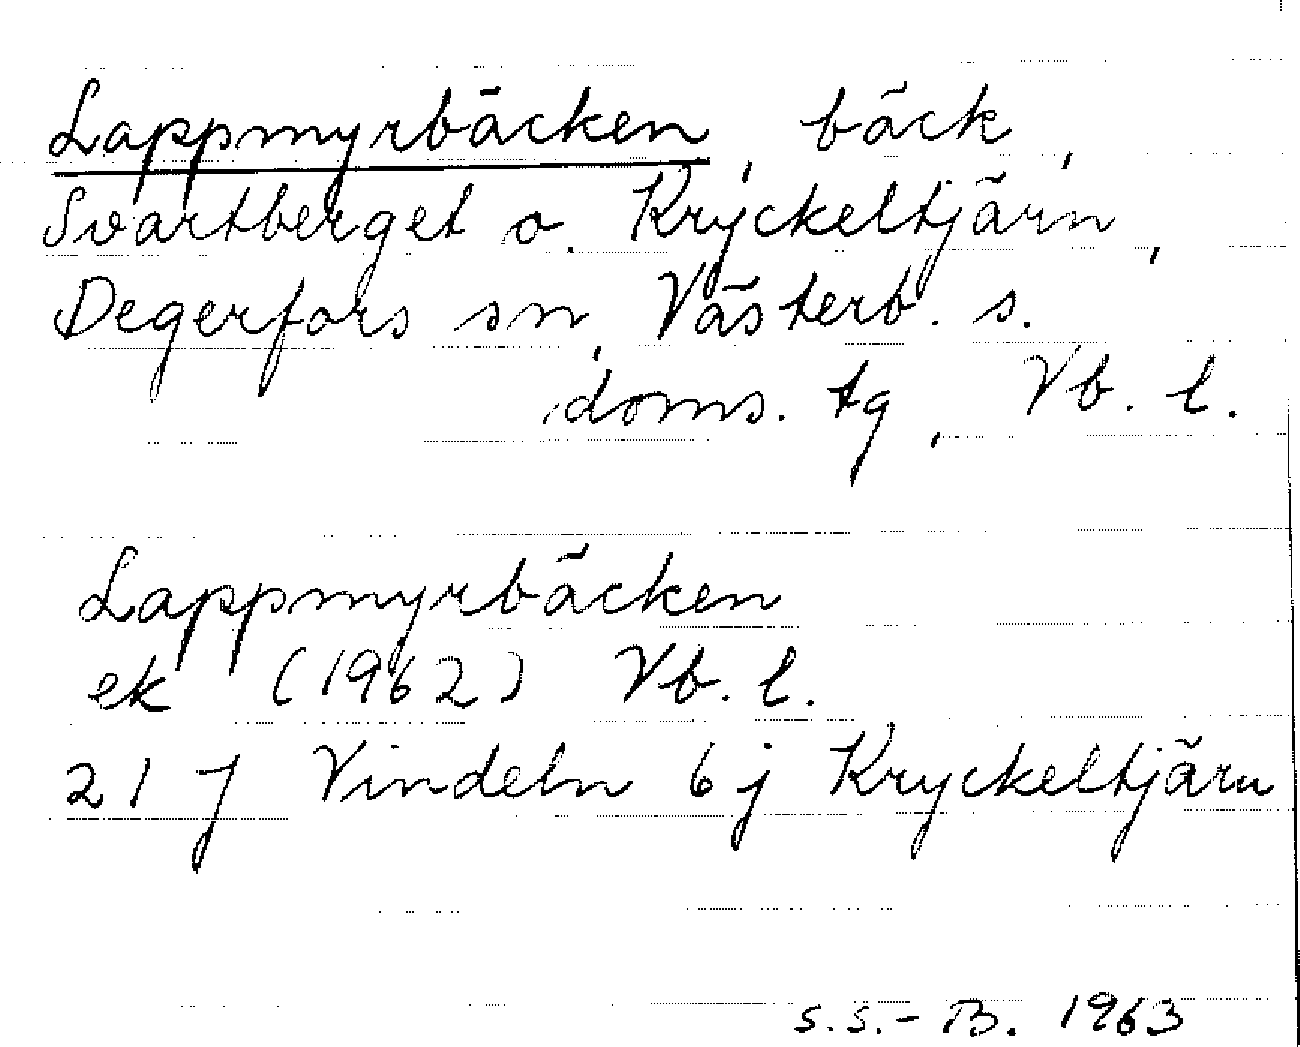 Lappmyrbäcken, bäck,
Svartberget o. Kryckeltjärn,
Degerfors sn, Västerb. s.
doms. tg, Vb. l.
Lappmyrbäcken
ek (1962) Vb. l.
21 J Vindeln 6 j Kryckeltjärn
S.S.-B. 1963